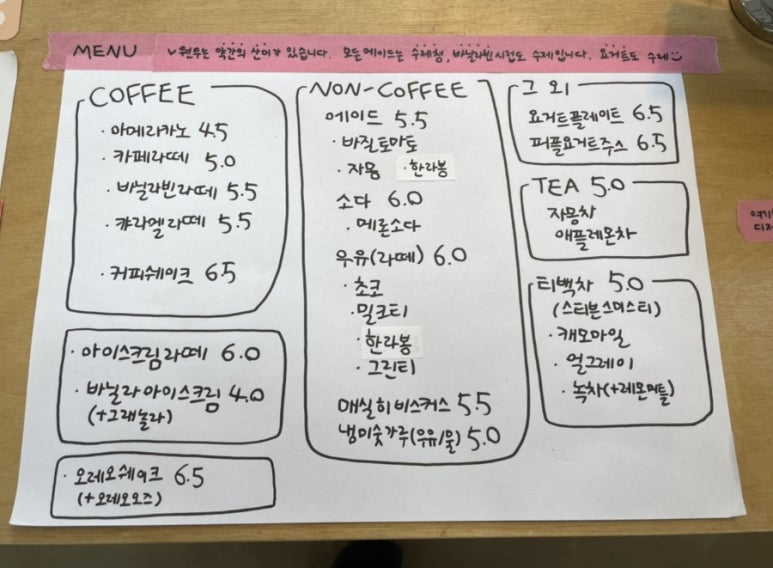 MENU ✓원두는 약간의 산미가 있습니다. 모든에이드는 수제청, 바닐라빈시럽도 수제입니다. 요거트도 수제
COFFEE
· 아메리카노 4.5
· 카페라떼 5.0
· 바닐라빈라떼 5.5
· 캬라멜라떼 5.5
· 커피쉐이크 6.5
· 아이스크림라떼 6.0
· 바닐라아이스크림 4.0
(+그래놀라)
· 오레오쉐이크 6.5
(+오레오오즈)
NON-COFFEE
에이드 5.5
· 바질토마토
· 자몽 · 한라봉
소다 6.0
· 메론소다
우유(라떼) 6.0
· 초코
· 밀크티
· 한라봉
· 그린티
매실히비스커스 5.5
냉미숫가루(우유/물) 5.0
그 외
요거트플레이트 6.5
피플요거트주스 6.5
TEA 5.0
자몽차
애플레몬차
티백차 5.0
(스티븐스미스티)
· 캐모마일
· 얼그레이
· 녹차(+레몬머틀)
여기
디저